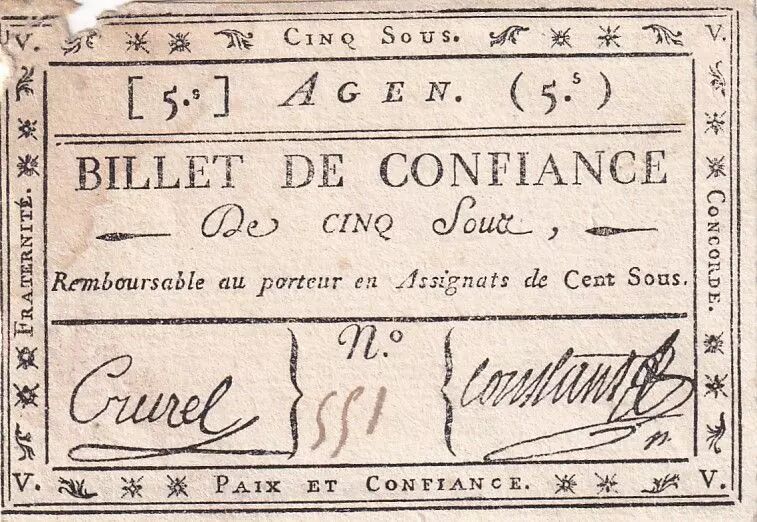 V. CINQ SOUS. V.
[ 5.s ] AGEN. ( 5.s )
BILLET DE CONFIANCE
De CINQ Sous,
Remboursable au porteur en Assignats de Cent Sous.
FRATERNITÉ.
CONCORDE.
N.o
551
V. PAIX ET CONFIANCE. V.